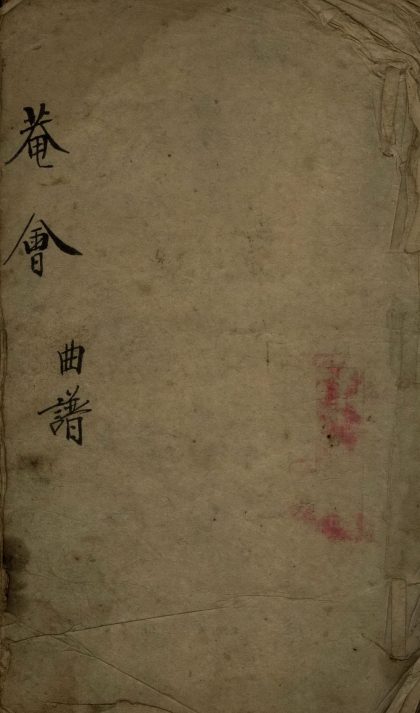 菴會
曲譜